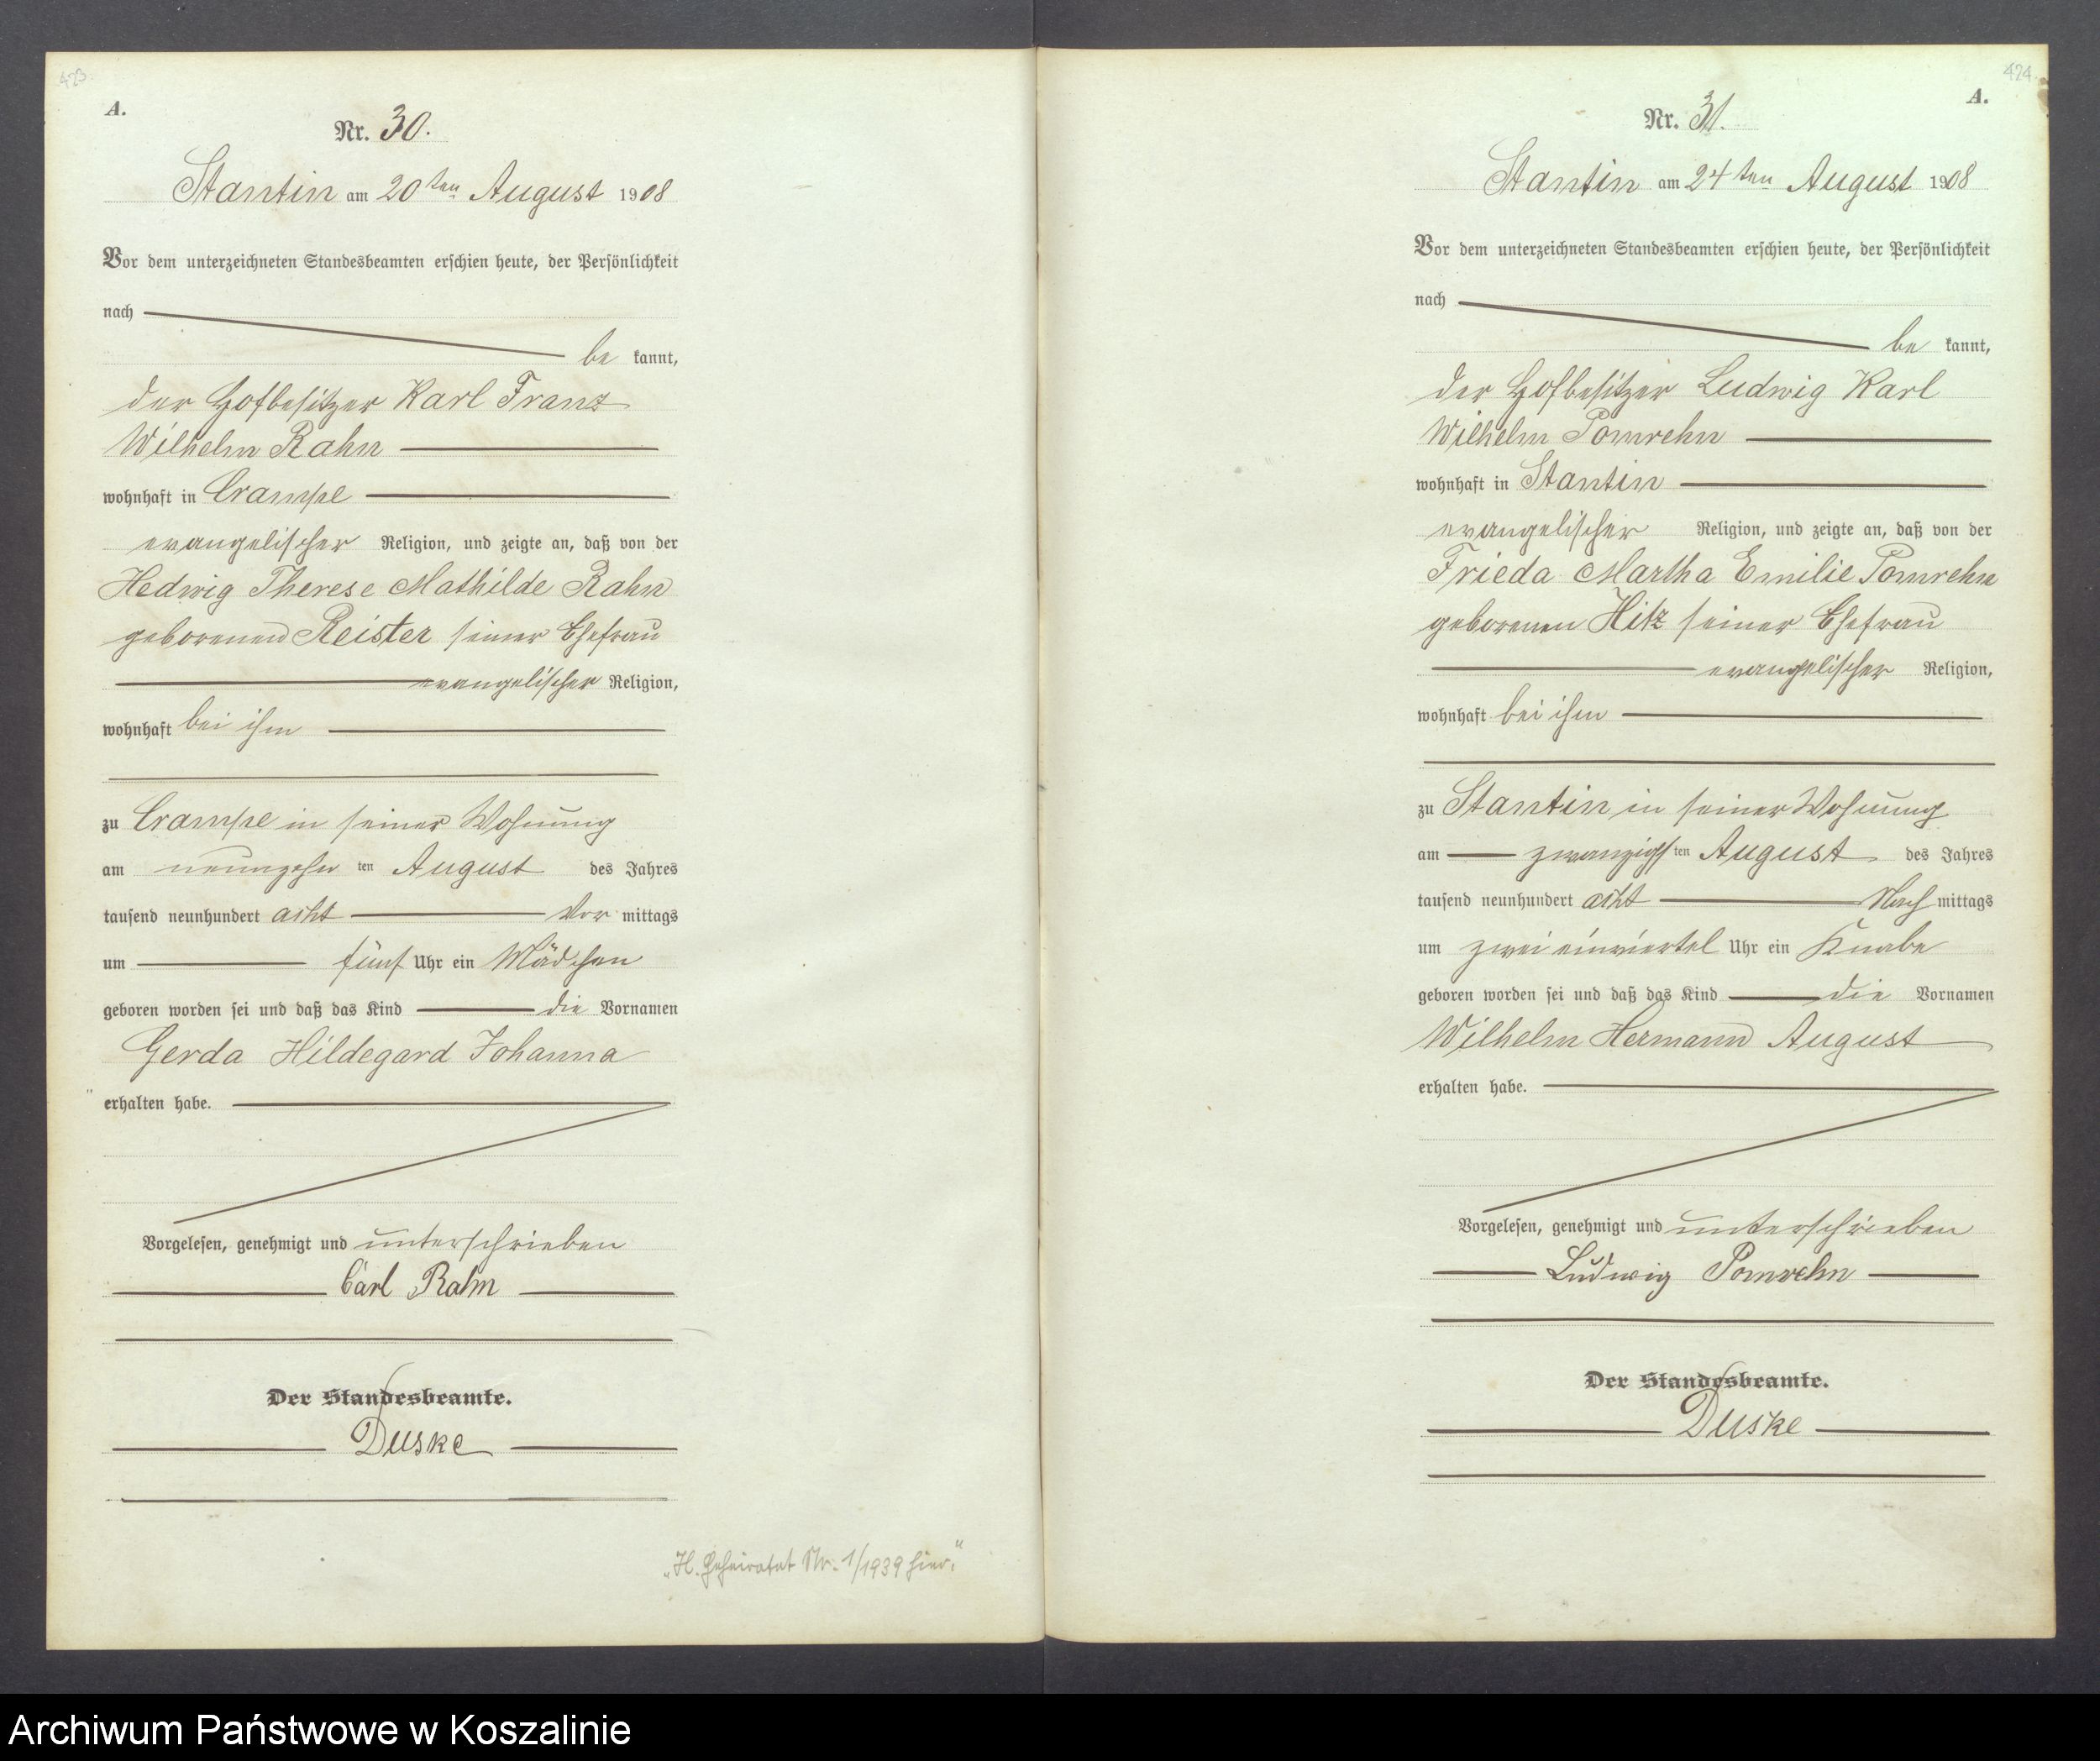 423.
A.
Nr. 30.
Stantin am 20ten August 1908
Vor dem unterzeichneten Standesbeamten erschien heute, der Persönlichkeit
nach
be kannt,
der Hofbesitzer Karl Franz
Wilhelm Rahn
wohnhaft in Crampe
evangelischer Religion, und zeigte an, daß von der
Hedwig Therese Mathilde Rahn
geborenen Reister seiner Ehefrau
evangelischer Religion,
wohnhaft bei ihm
zu Crampe in seiner Wohnung
am neunzehn ten August des Jahres
tausend neunhundert acht Vor mittags
um fünf Uhr ein Mädchen
geboren worden sei und daß das Kind die Vornamen
Gerda Hildegard Johanna
erhalten habe.
Vorgelesen, genehmigt und unterschrieben
Carl Rahn
Der Standesbeamte.
Duske
„H. Geheiratet Nr. 1/1939 hier."
424.
A.
Nr. 31.
Stantin am 24ten August 1908
Vor dem unterzeichneten Standesbeamten erschien heute, der Persönlichkeit
nach
be kannt,
der Hofbesitzer Ludwig Karl
Wilhelm Pomrehn
wohnhaft in Stantin
evangelischer Religion, und zeigte an, daß von der
Frieda Martha Emilie Pomrehn
geborenen Hitz seiner Ehefrau
evangelischer Religion,
wohnhaft bei ihm
zu Stantin in seiner Wohnung
am zwanzigs ten August des Jahres
tausend neunhundert acht Nach mittags
um zwei einviertel Uhr ein Knabe
geboren worden sei und daß das Kind die Vornamen
Wilhelm Hermann August
erhalten habe.
Vorgelesen, genehmigt und unterschrieben
Ludwig Pomrehn
Der Standesbeamte.
Duske
Archiwum Państwowe w Koszalinie